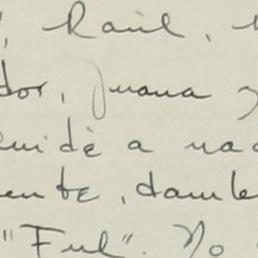 ", Raúl.
dor, Juana y
vidé a nad
ente, tamb
"Ful". No